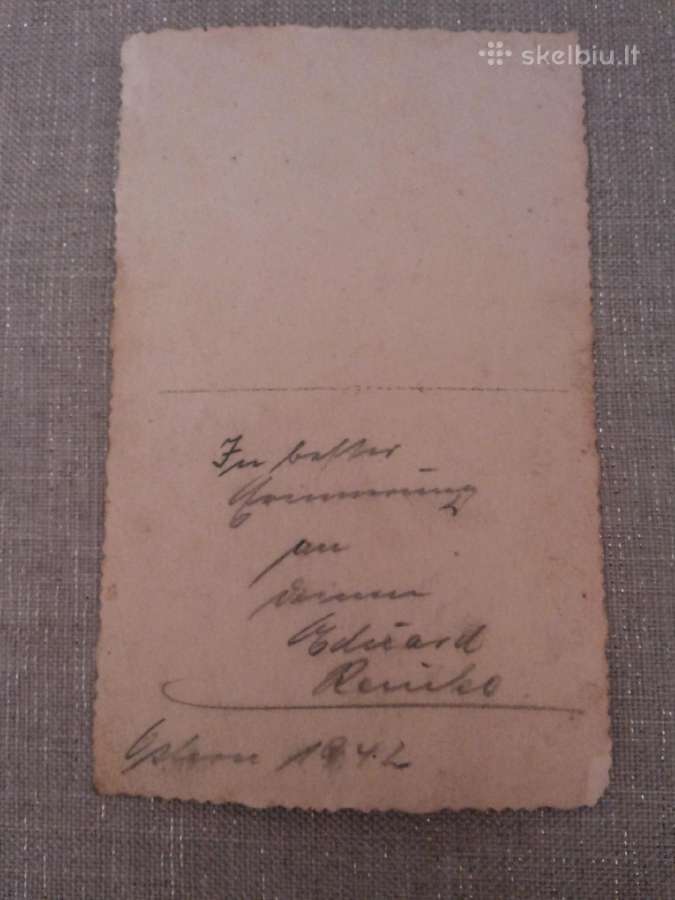 skelbiu.lt
In bester
Erinnerung
an
deinen
Eduard
Ostern 1942